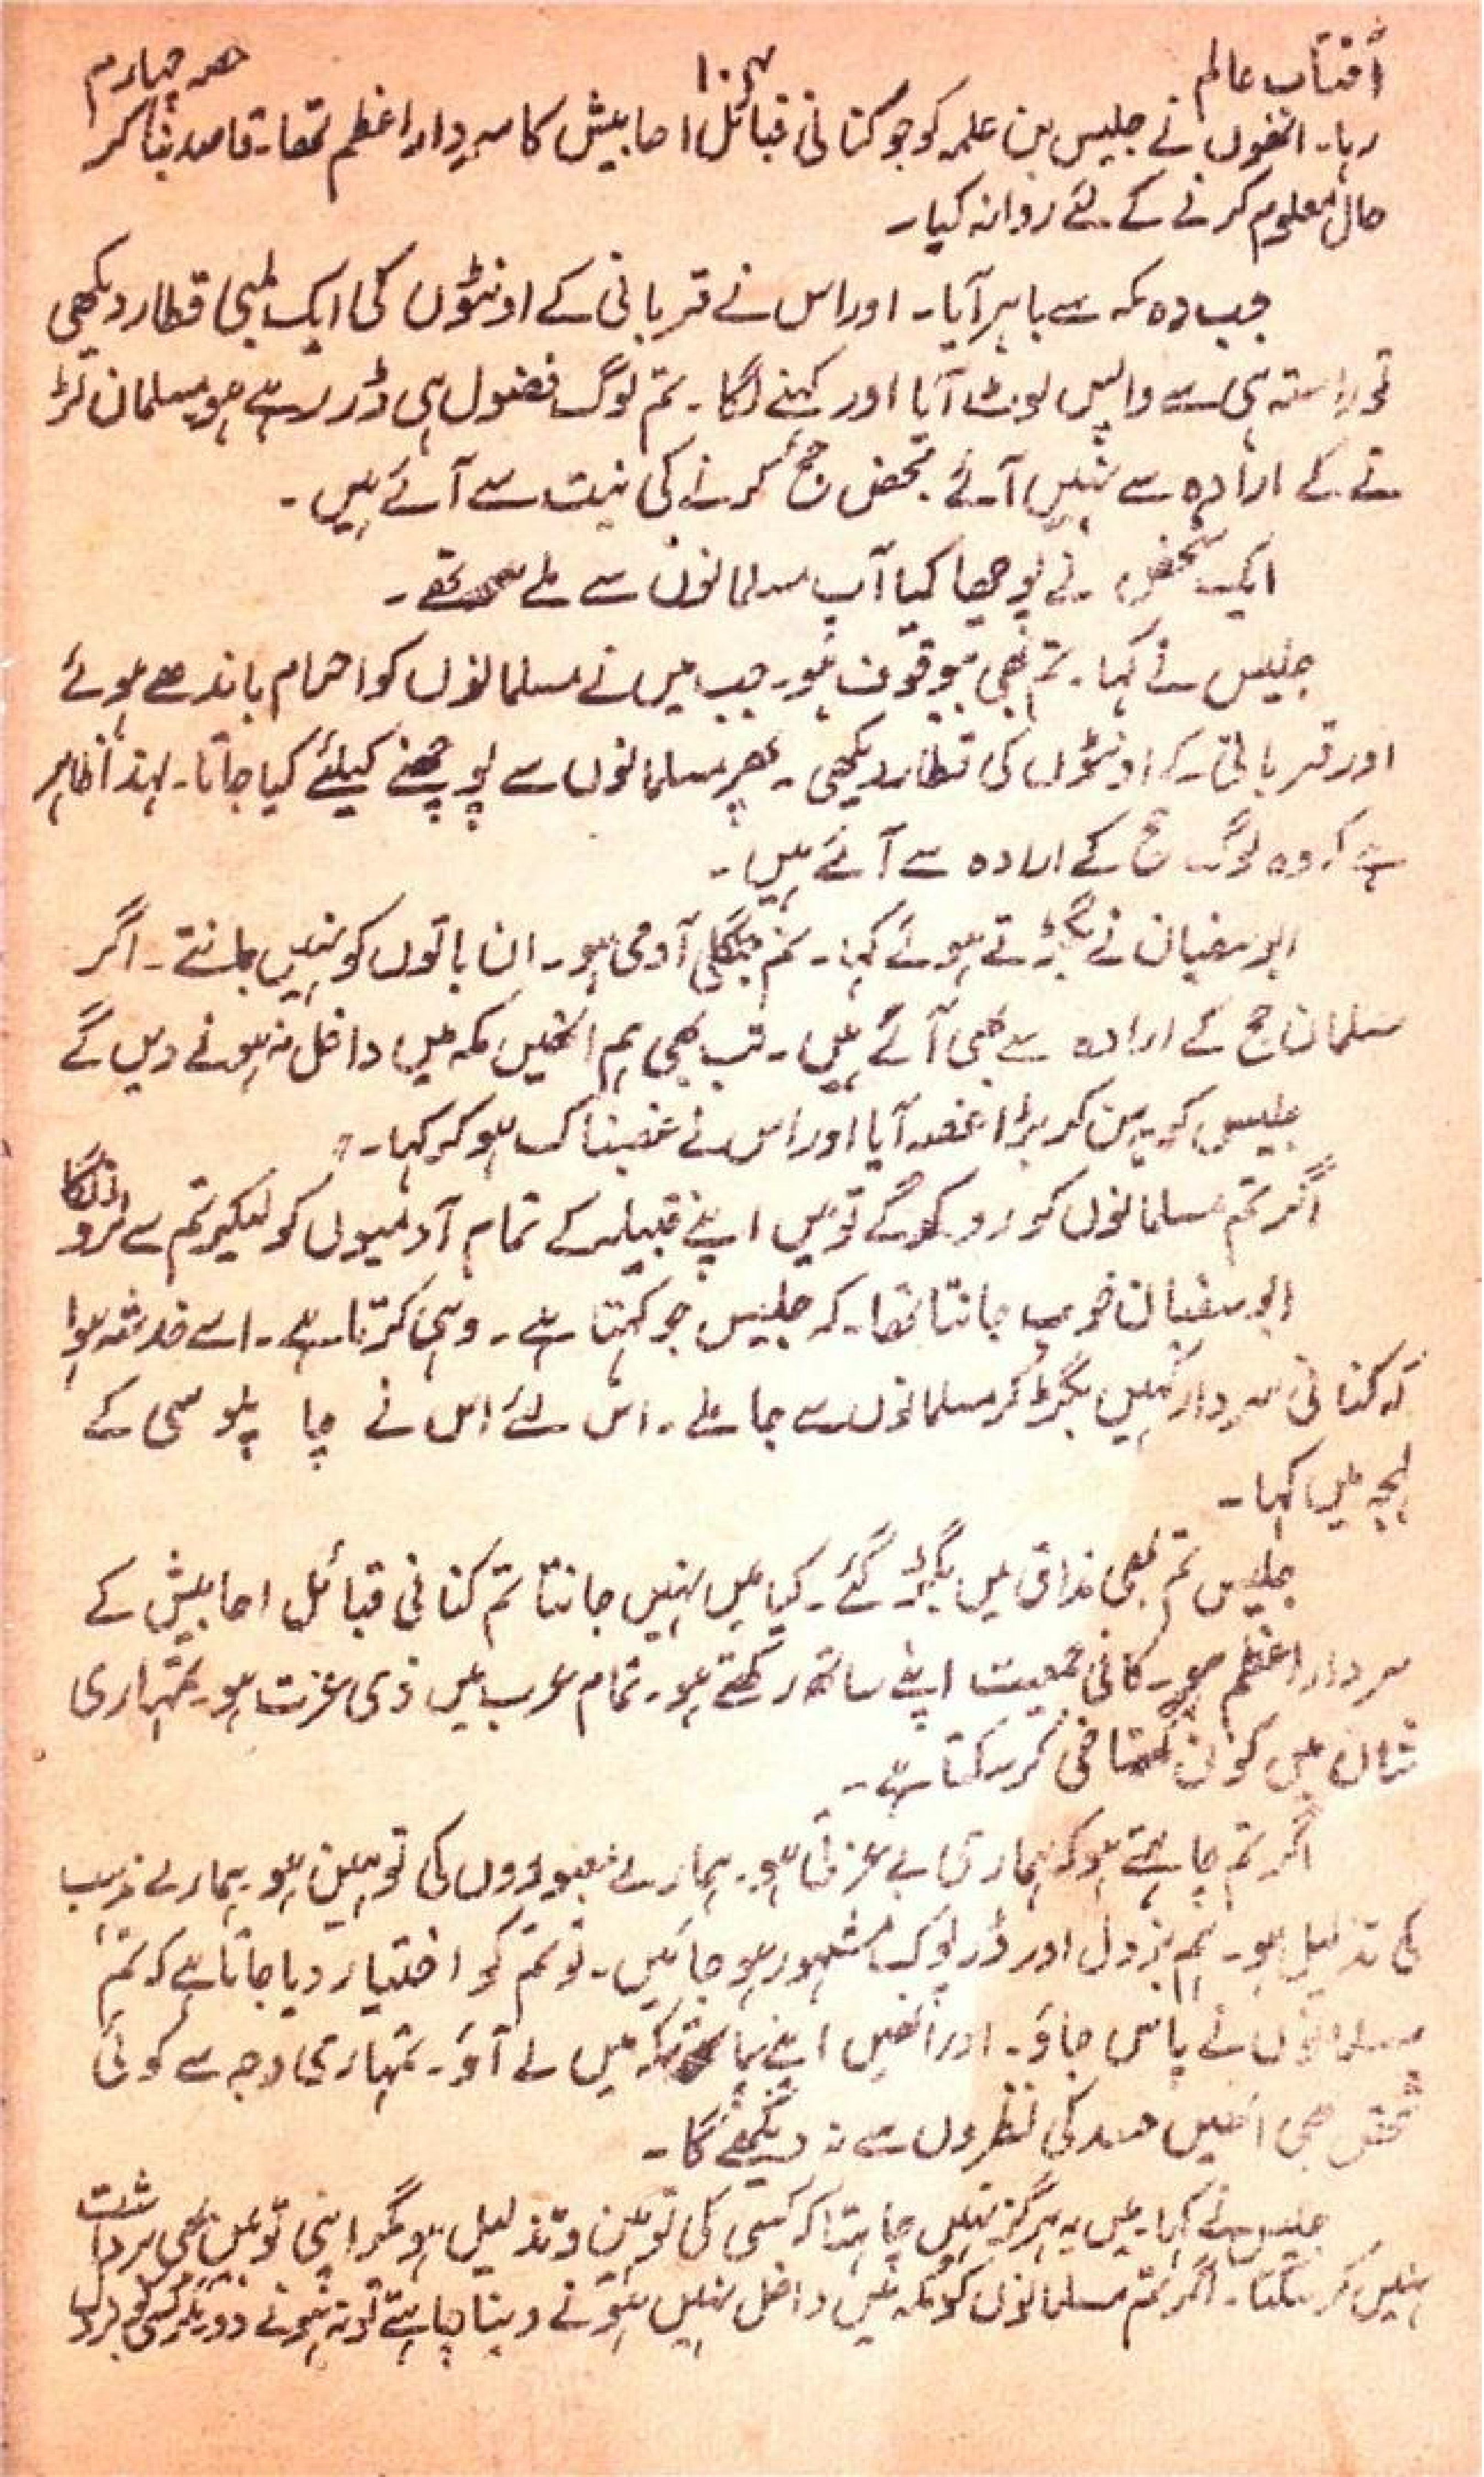 آفتاب عالم ۱۰۴ حصہ چہارم
رہا۔ انھوں نے جلیس بن علمہ کو جو کنانی قبائل احابیش کا سردار اعظم تھا۔ قاصد بنا کر
حال معلوم کرنے کے لئے روانہ کیا۔
جب وہ مکہ سے باہر آیا۔ اور اس نے قربانی کے اونٹوں کی ایک لمبی قطار دیکھی
تو راستہ ہی سے واپس لوٹ آیا اور کہنے لگا۔ تم لوگ فضول ہی ڈر رہے ہو مسلمان لڑ
نے کے ارادہ سے نہیں آئے محض حج کرنے کی نیت سے آئے ہیں۔
ایک شخص نے پوچھا کیا آپ مسلمانوں سے ملے تھے۔
جلیس نے کہا۔ تم بھی بیوقوف ہو۔ جب میں نے مسلمانوں کو احرام باندھے ہوئے
اور قربانی کے اونٹوں کی قطار دیکھی۔ پھر مسلمانوں سے پوچھنے کیلئے کیا جاتا۔ لہذا ظاہر
ہے کہ وہ لوگ حج کے ارادہ سے آئے ہیں۔
ابو سفیان نے بگڑتے ہوئے کہا۔ تم جنگلی آدمی ہو۔ ان باتوں کو نہیں جانتے۔ اگر
مسلمان حج کے ارادہ سے بھی آئے ہیں۔ تب بھی ہم انھیں مکہ میں داخل نہ ہونے دیں گے
جلیس کو یہ سن کر بڑا غصہ آیا اور اس نے غضبناک ہو کر کہا۔
اگر تم مسلمانوں کو روکو گے تو میں اپنے قبیلہ کے تمام آدمیوں کو لیکر تم سے لڑونگا
ابو سفیان خوب جانتا تھا۔ کہ جلیس جو کہتا ہے۔ وہی کرتا ہے۔ اسے خدشہ ہوا
کہ کنانی سردار کہیں بگڑ کر مسلمانوں سے جا ملے۔ اس لئے اس نے چا پلو سی کے
لہجہ میں کہا۔
جلیس تم بھی مذاق میں بگڑ گئے۔ کیا میں نہیں جانتا تم کنانی قبائل احابیش کے
سردار اعظم ہو۔ کافی جمعیت اپنے ساتھ رکھتے ہو۔ تمام عرب میں ذی عزت ہو۔ تمہاری
شان میں کون گستاخی کر سکتا ہے۔
اگر تم چاہتے ہو کہ ہماری بے عزتی ہو۔ ہمارے معبودوں کی توہین ہو۔ ہمارے مذہب
کی تذلیل ہو۔ ہم بزدل اور ڈرپوک مشہور ہو جائیں۔ تو تم کو اختیار دیا جاتا ہے کہ تم
مسلمانوں کے پاس جاؤ۔ اور انھیں اپنے ساتھ مکہ میں لے آؤ۔ تمہاری وجہ سے کوئی
شخص بھی انھیں حسد کی نظروں سے نہ دیکھے گا۔
جلیس نے کہا۔ میں یہ ہرگز نہیں چاہتا کہ کسی کی توہین و تذلیل ہو مگر اپنی توہین بھی برداشت
نہیں کر سکتا۔ اگر تم مسلمانوں کو مکہ میں داخل نہیں ہونے دینا چاہتے تو نہ ہونے دو